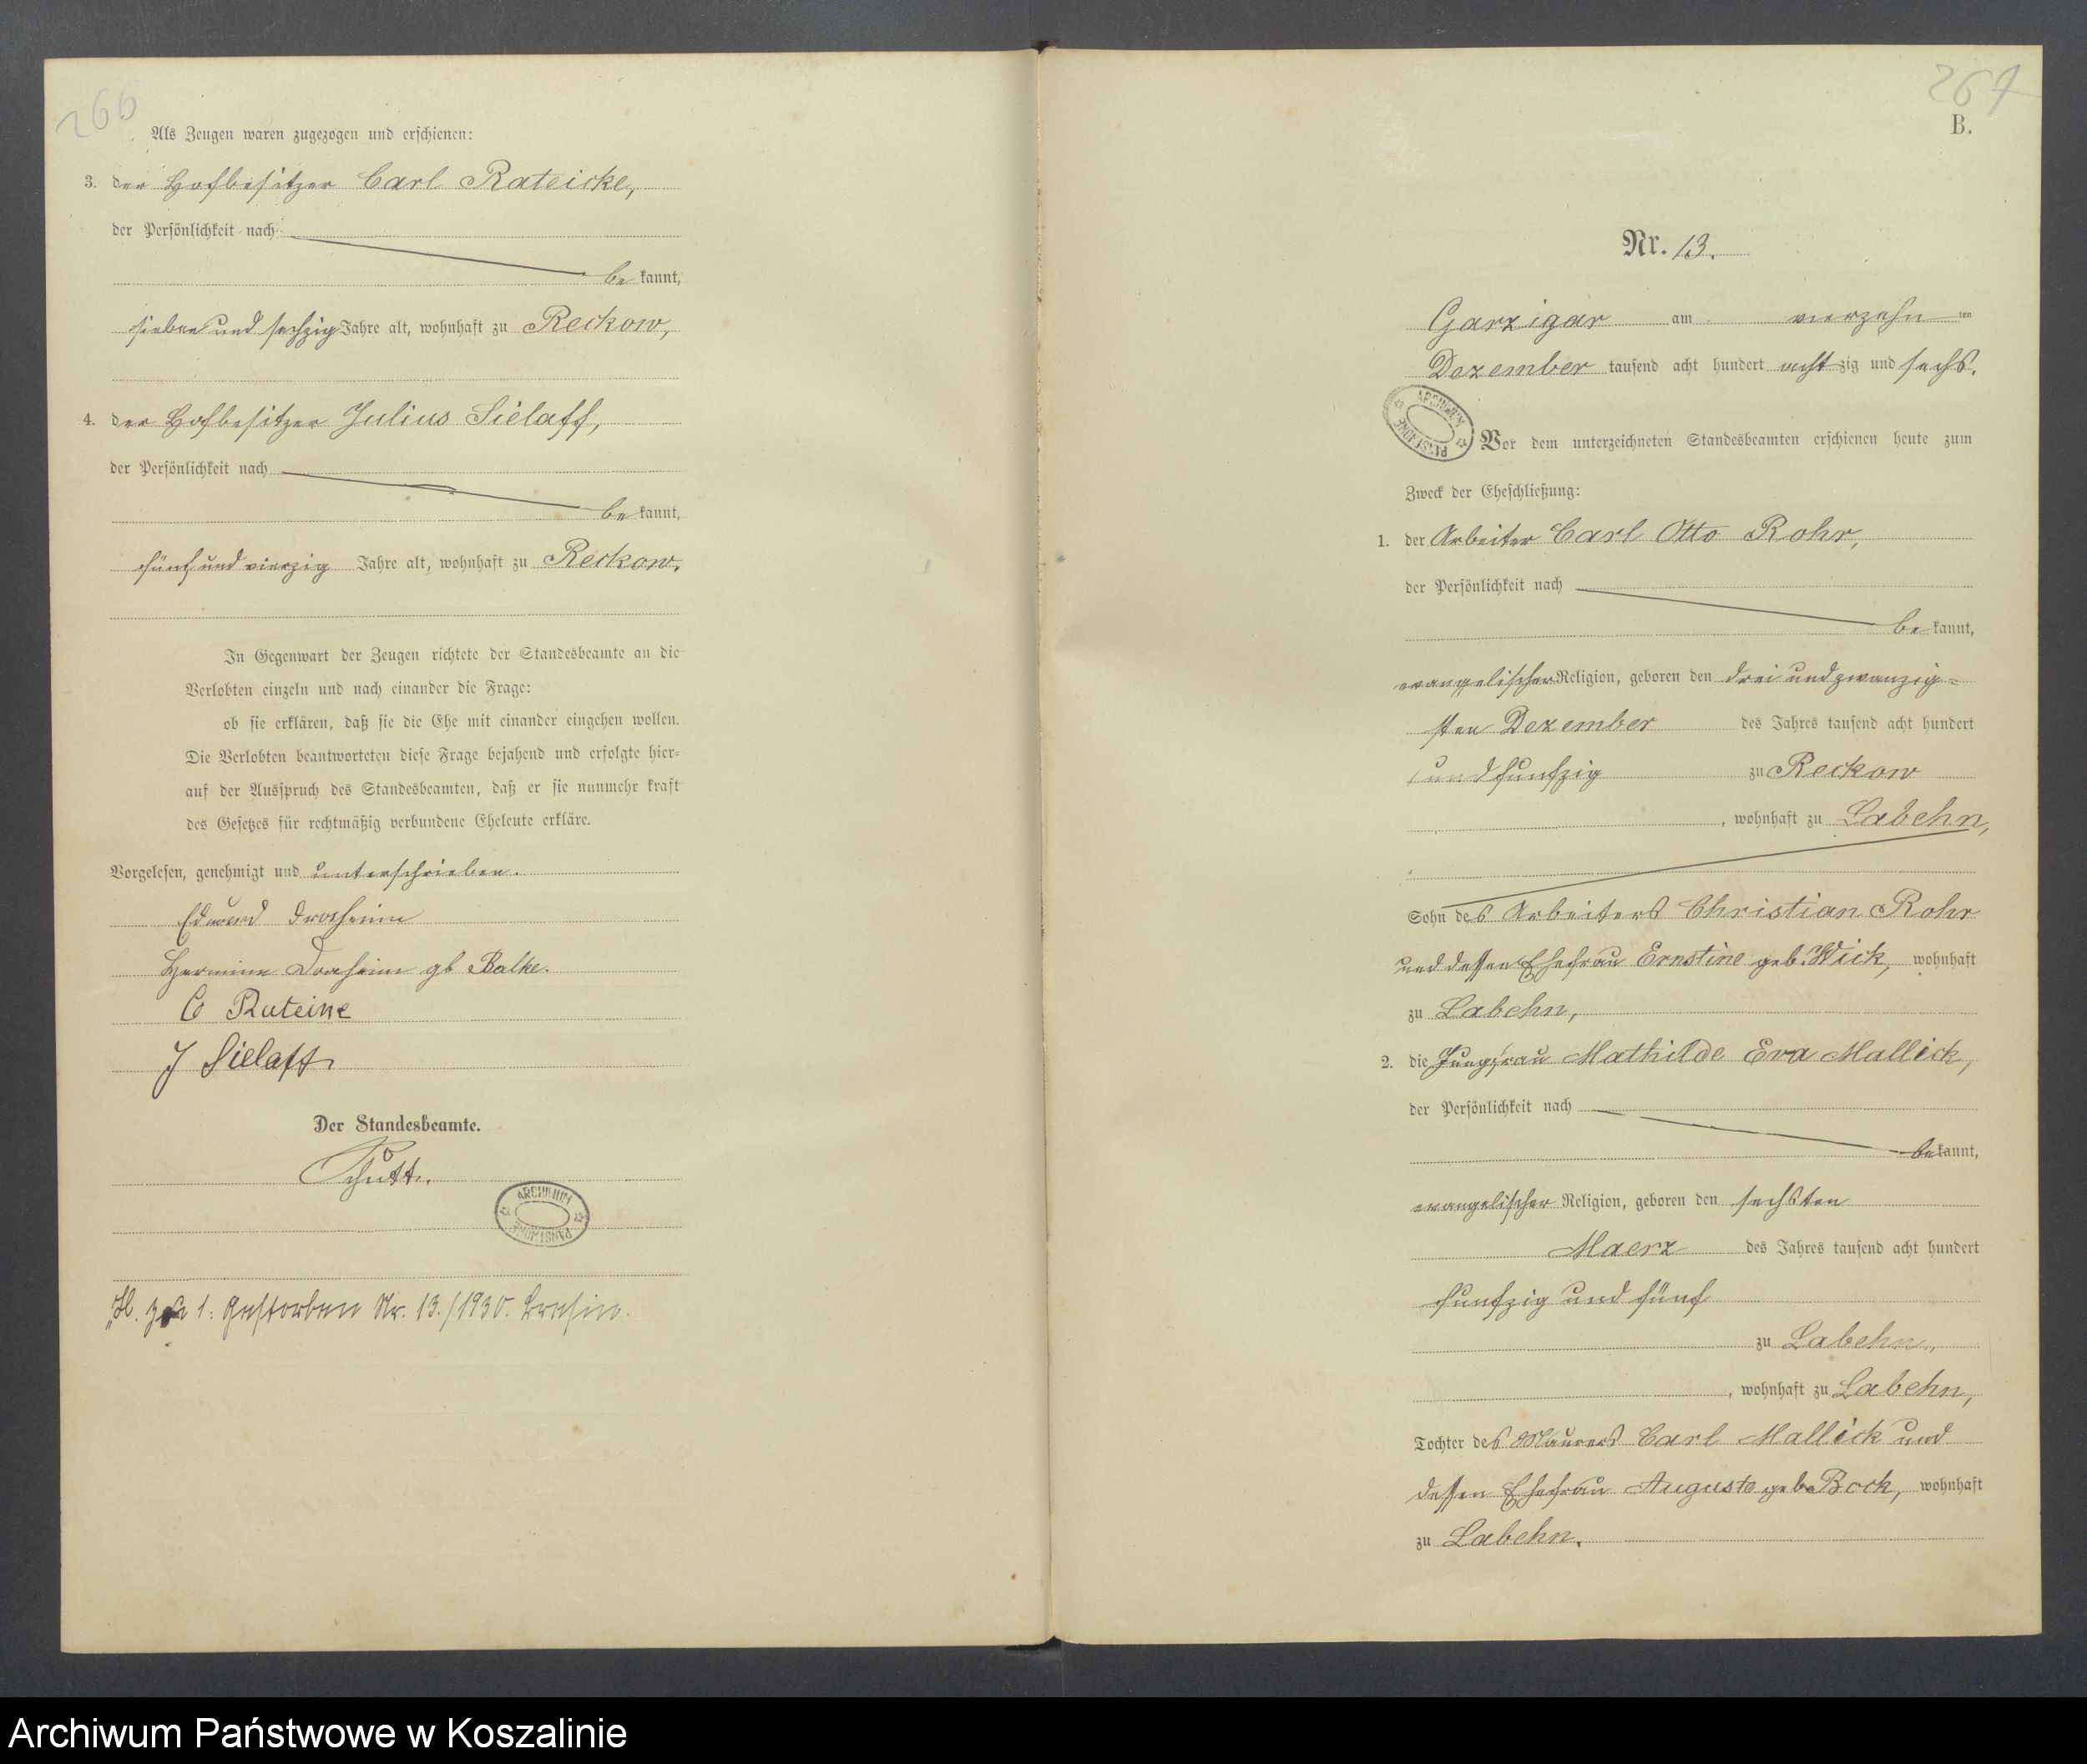 266
Als Zeugen waren zugezogen und erschienen:
3. der Hofbesitzer Carl Rateicke,
der Persönlichkeit nach
be kannt,
sieben und sechzig Jahre alt, wohnhaft zu Reckow,
4. der Hofbesitzer Julius Sielaff,
der Persönlichkeit nach
be kannt,
fünf und vierzig Jahre alt, wohnhaft zu Reckow.
In Gegenwart der Zeugen richtete der Standesbeamte an die
Verlobten einzeln und nach einander die Frage:
ob sie erklären, daß sie die Ehe mit einander eingehen wollen.
Die Verlobten beantworteten diese Frage bejahend und erfolgte hier-
auf der Ausspruch des Standesbeamten, daß er sie nunmehr kraft
des Gesetzes für rechtmäßig verbundene Eheleute erkläre.
Vorgelesen, genehmigt und unterschrieben.
Edmund Draheim
Hermine Draheim gb Balke.
C Rateike
J Sielaff
Der Standesbeamte.
Schütt.
ARCHIWUM PAŃSTWOWE
H. zu 1: Gestorben Nr. 13./1930.
267
B.
Nr. 13.
Garzigar am vierzehn ten
Dezember tausend acht hundert achtzig und sechs.
ARCHIWUM PAŃSTWOWE
Vor dem unterzeichneten Standesbeamten erschienen heute zum
Zweck der Eheschließung:
1. der Arbeiter Carl Otto Rohr,
der Persönlichkeit nach
be kannt,
evangelischer Religion, geboren den drei und zwanzig-
sten Dezember des Jahres tausend acht hundert
und funfzig zu Reckow
, wohnhaft zu Labehn,
Sohn des Arbeiters Christian Rohr
und dessen Ehefrau Ernstine geb. Wick, wohnhaft
zu Labehn,
2. die Jungfrau Mathilde Eva Mallick,
der Persönlichkeit nach
be kannt,
evangelischer Religion, geboren den sechsten
Maerz des Jahres tausend acht hundert
funfzig und fünf
zu Labehn,
, wohnhaft zu Labehn,
Tochter des Maurers Carl Mallick und
dessen Ehefrau Auguste geb. Bock, wohnhaft
zu Labehn.
Archiwum Państwowe w Koszalinie